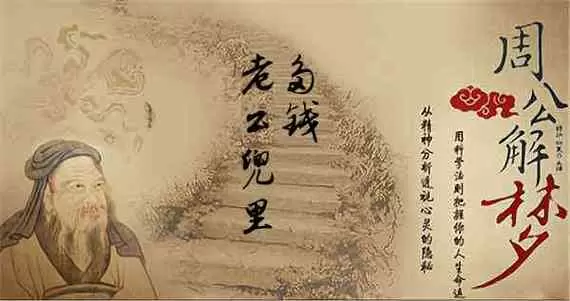 周公解梦
用科学法则把握你的人生命运
从精神分析透视心灵的隐秘
多钱
老公兜里